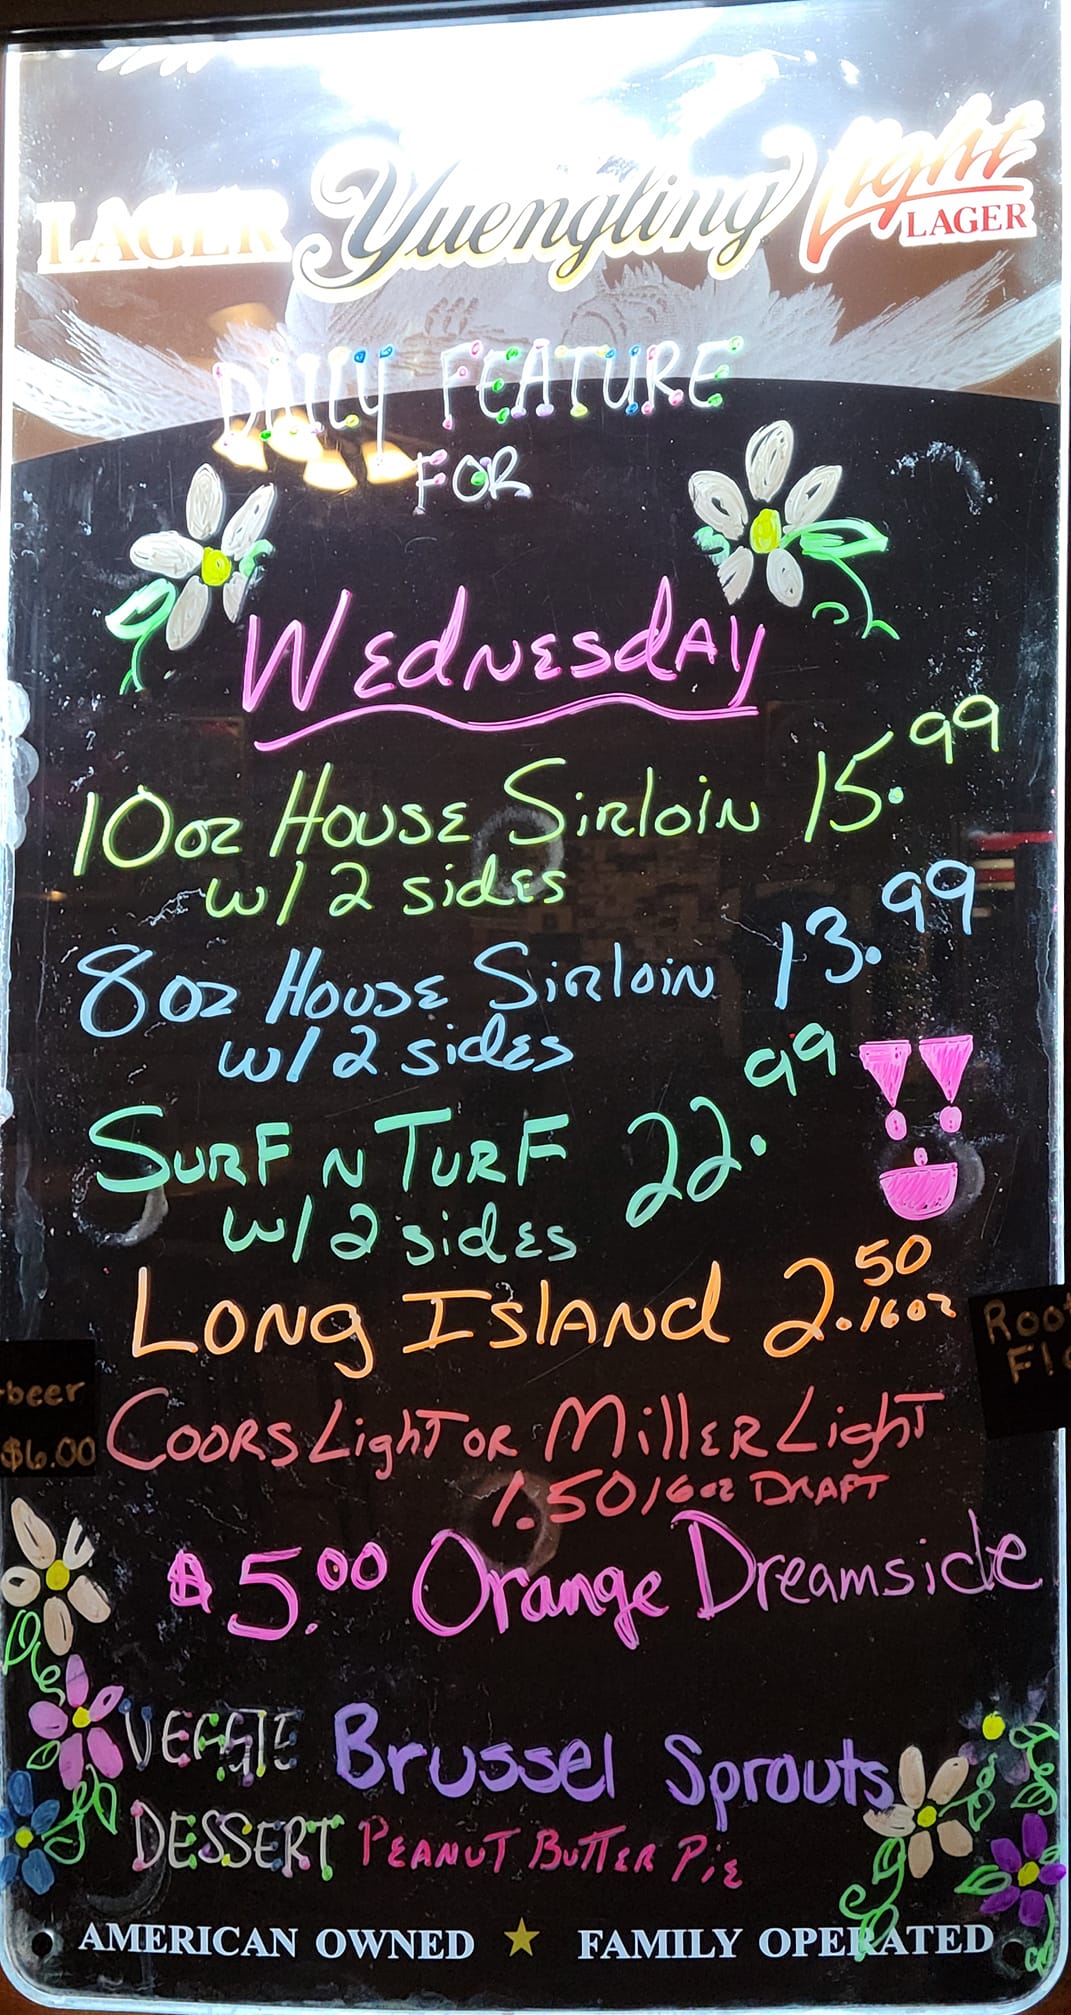 LAGER Yuengling Light LAGER
DAILY FEATURE
FOR
WEdNESdAY
10oz HOUSE Sirloin 15.99
w/ 2 sides
8oz HOUSE Sirloin 13.99
w/ 2 sides
SURF N TURF 22.99
w/ 2 sides
LONg ISlANd 2.50 16oz
beer
$6.00
Roo
Fl
COORS LighT OR MillER LighT
1.50 16oz DRAFT
$5.00 Orange Dreamsicle
VEGGIE Brussel Sprouts
DESSERT PEANUT BUTTER PiE
AMERICAN OWNED ★ FAMILY OPERATED